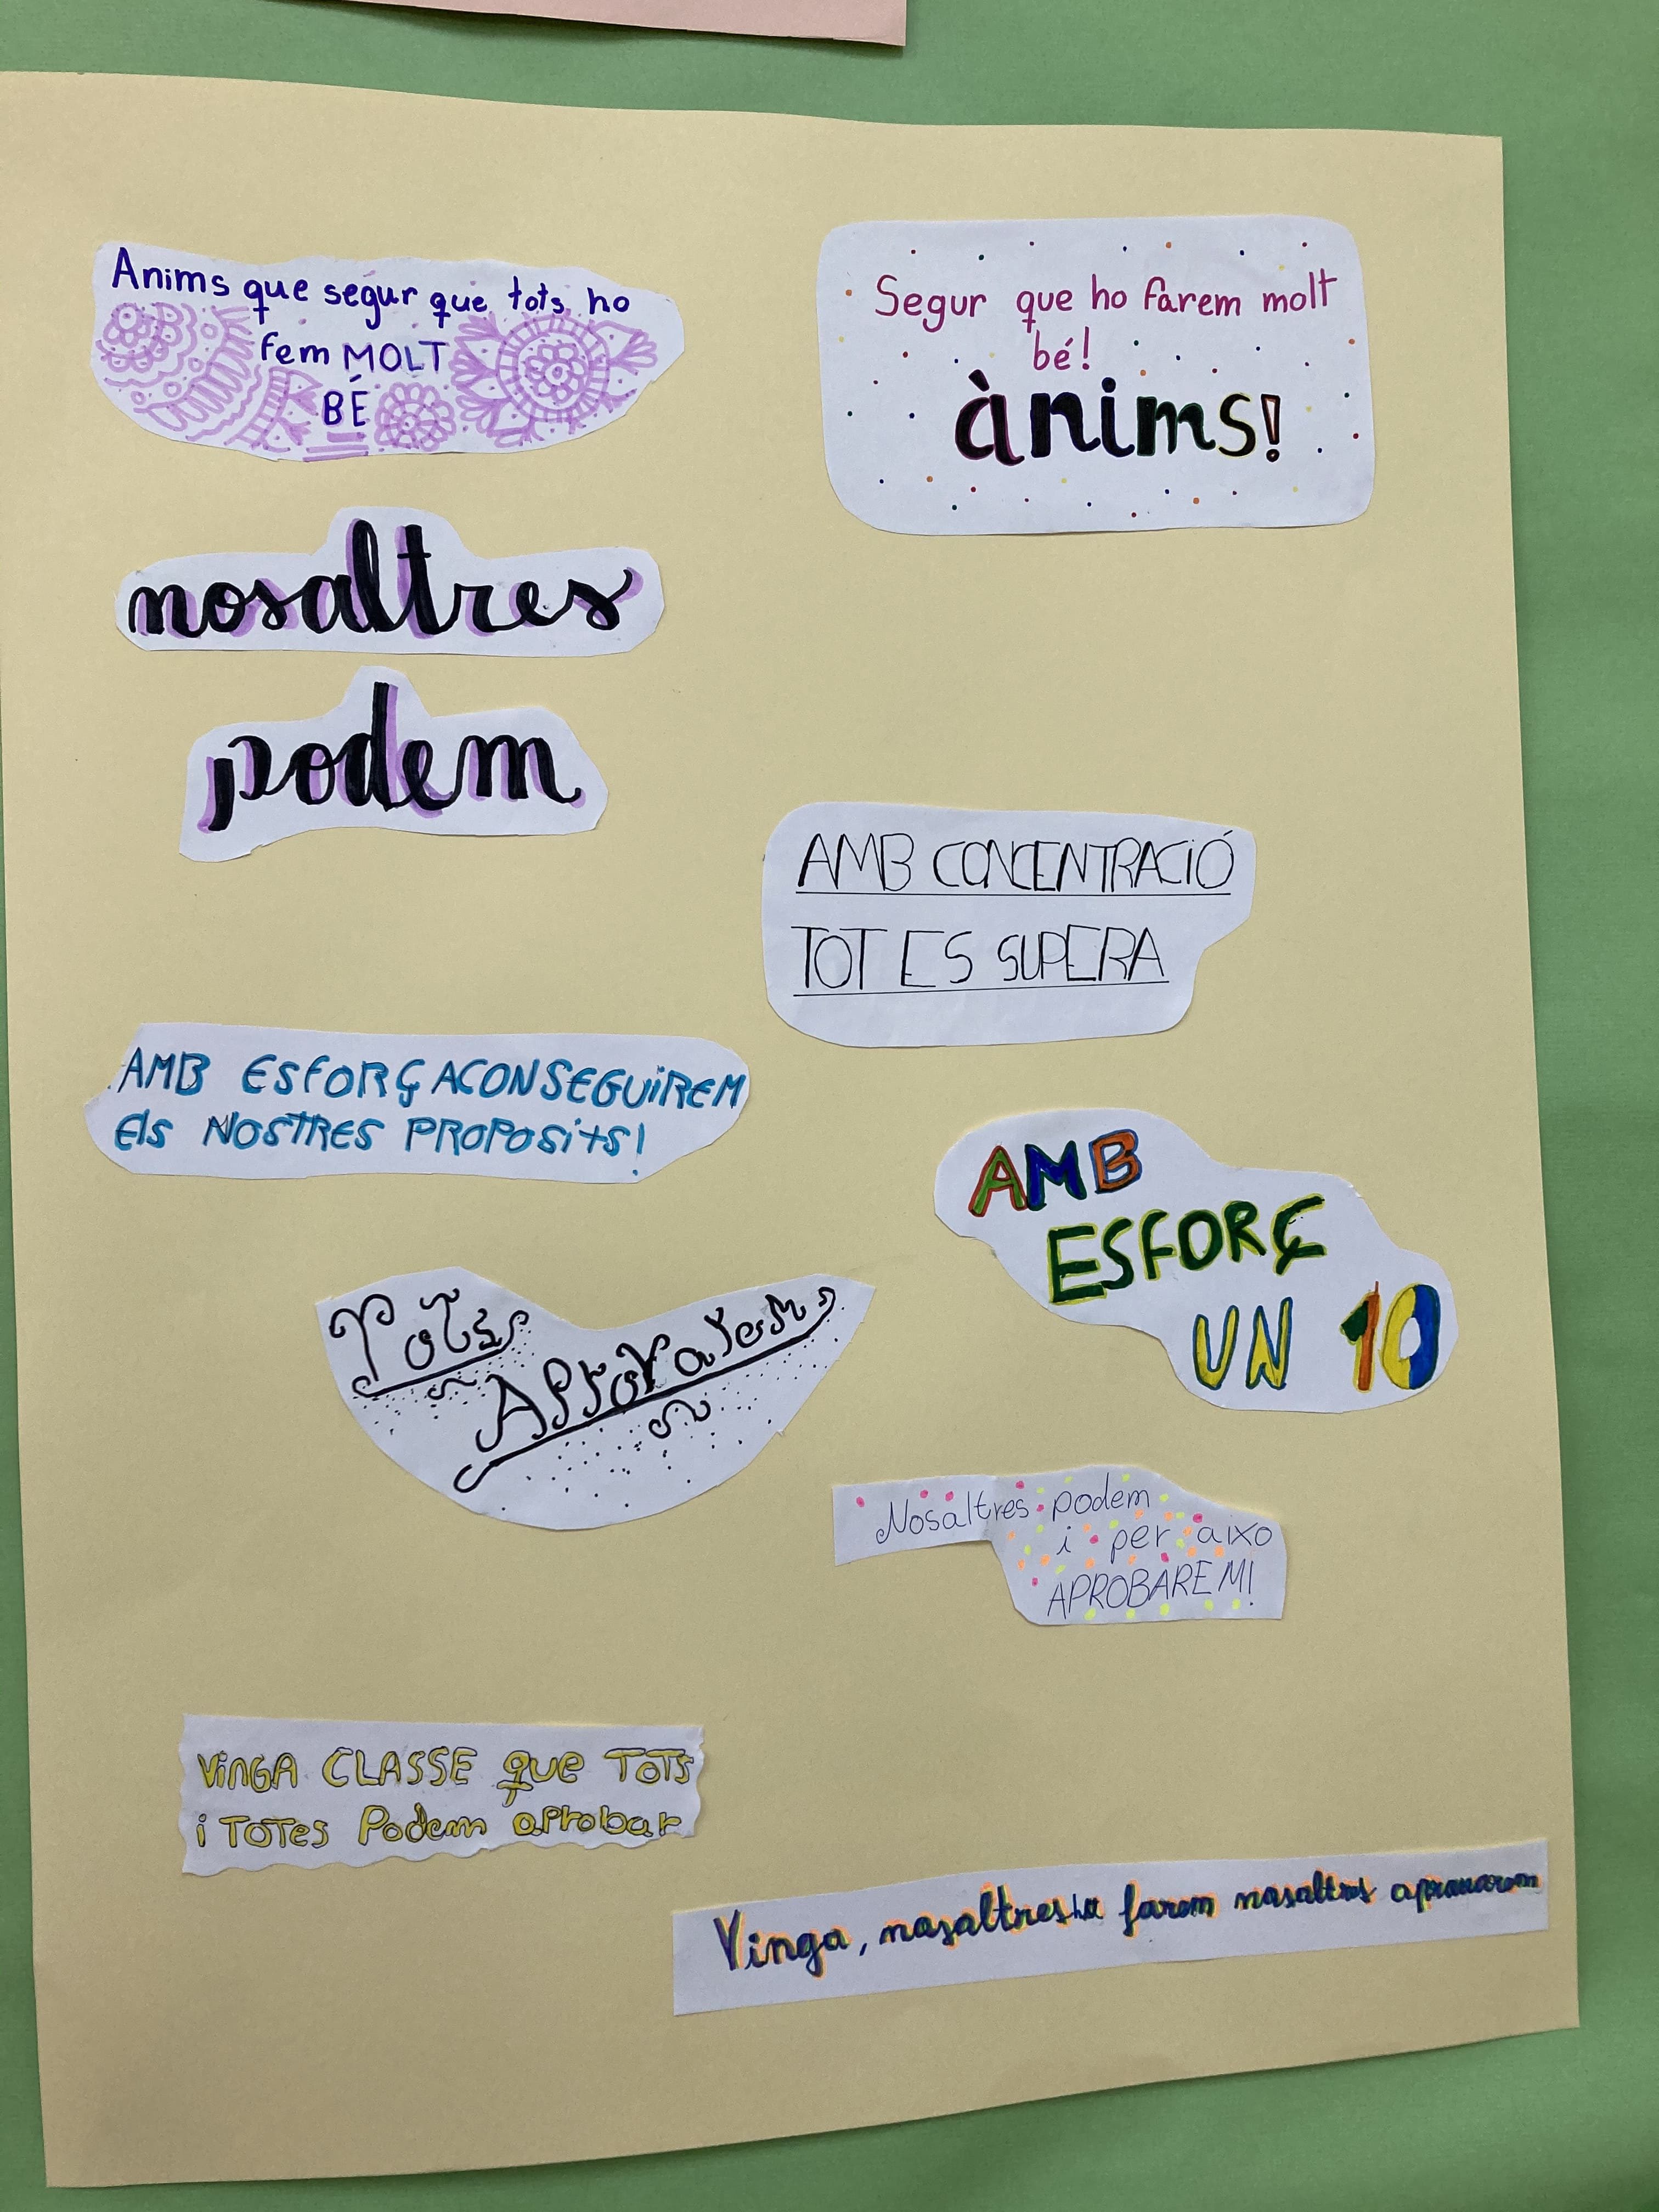 Anims que segur que tots ho
fem MOLT
BÉ
Segur que ho farem molt
bé!
ànims!
nosaltres
podem
AMB CONCENTRACIÓ
TOT ES SUPERA
AMB ESFORÇ ACONSEGUIREM
Els NOSTRES PROPOSITS!
AMB
ESFORÇ
UN 10
Tots
Aprovarem
Nosaltres podem
i per aixo
APROBAREM!
VINGA CLASSE que TOTS
i TOTES Podem aprobar
Vinga, nosaltres farem nosaltres aprovarem